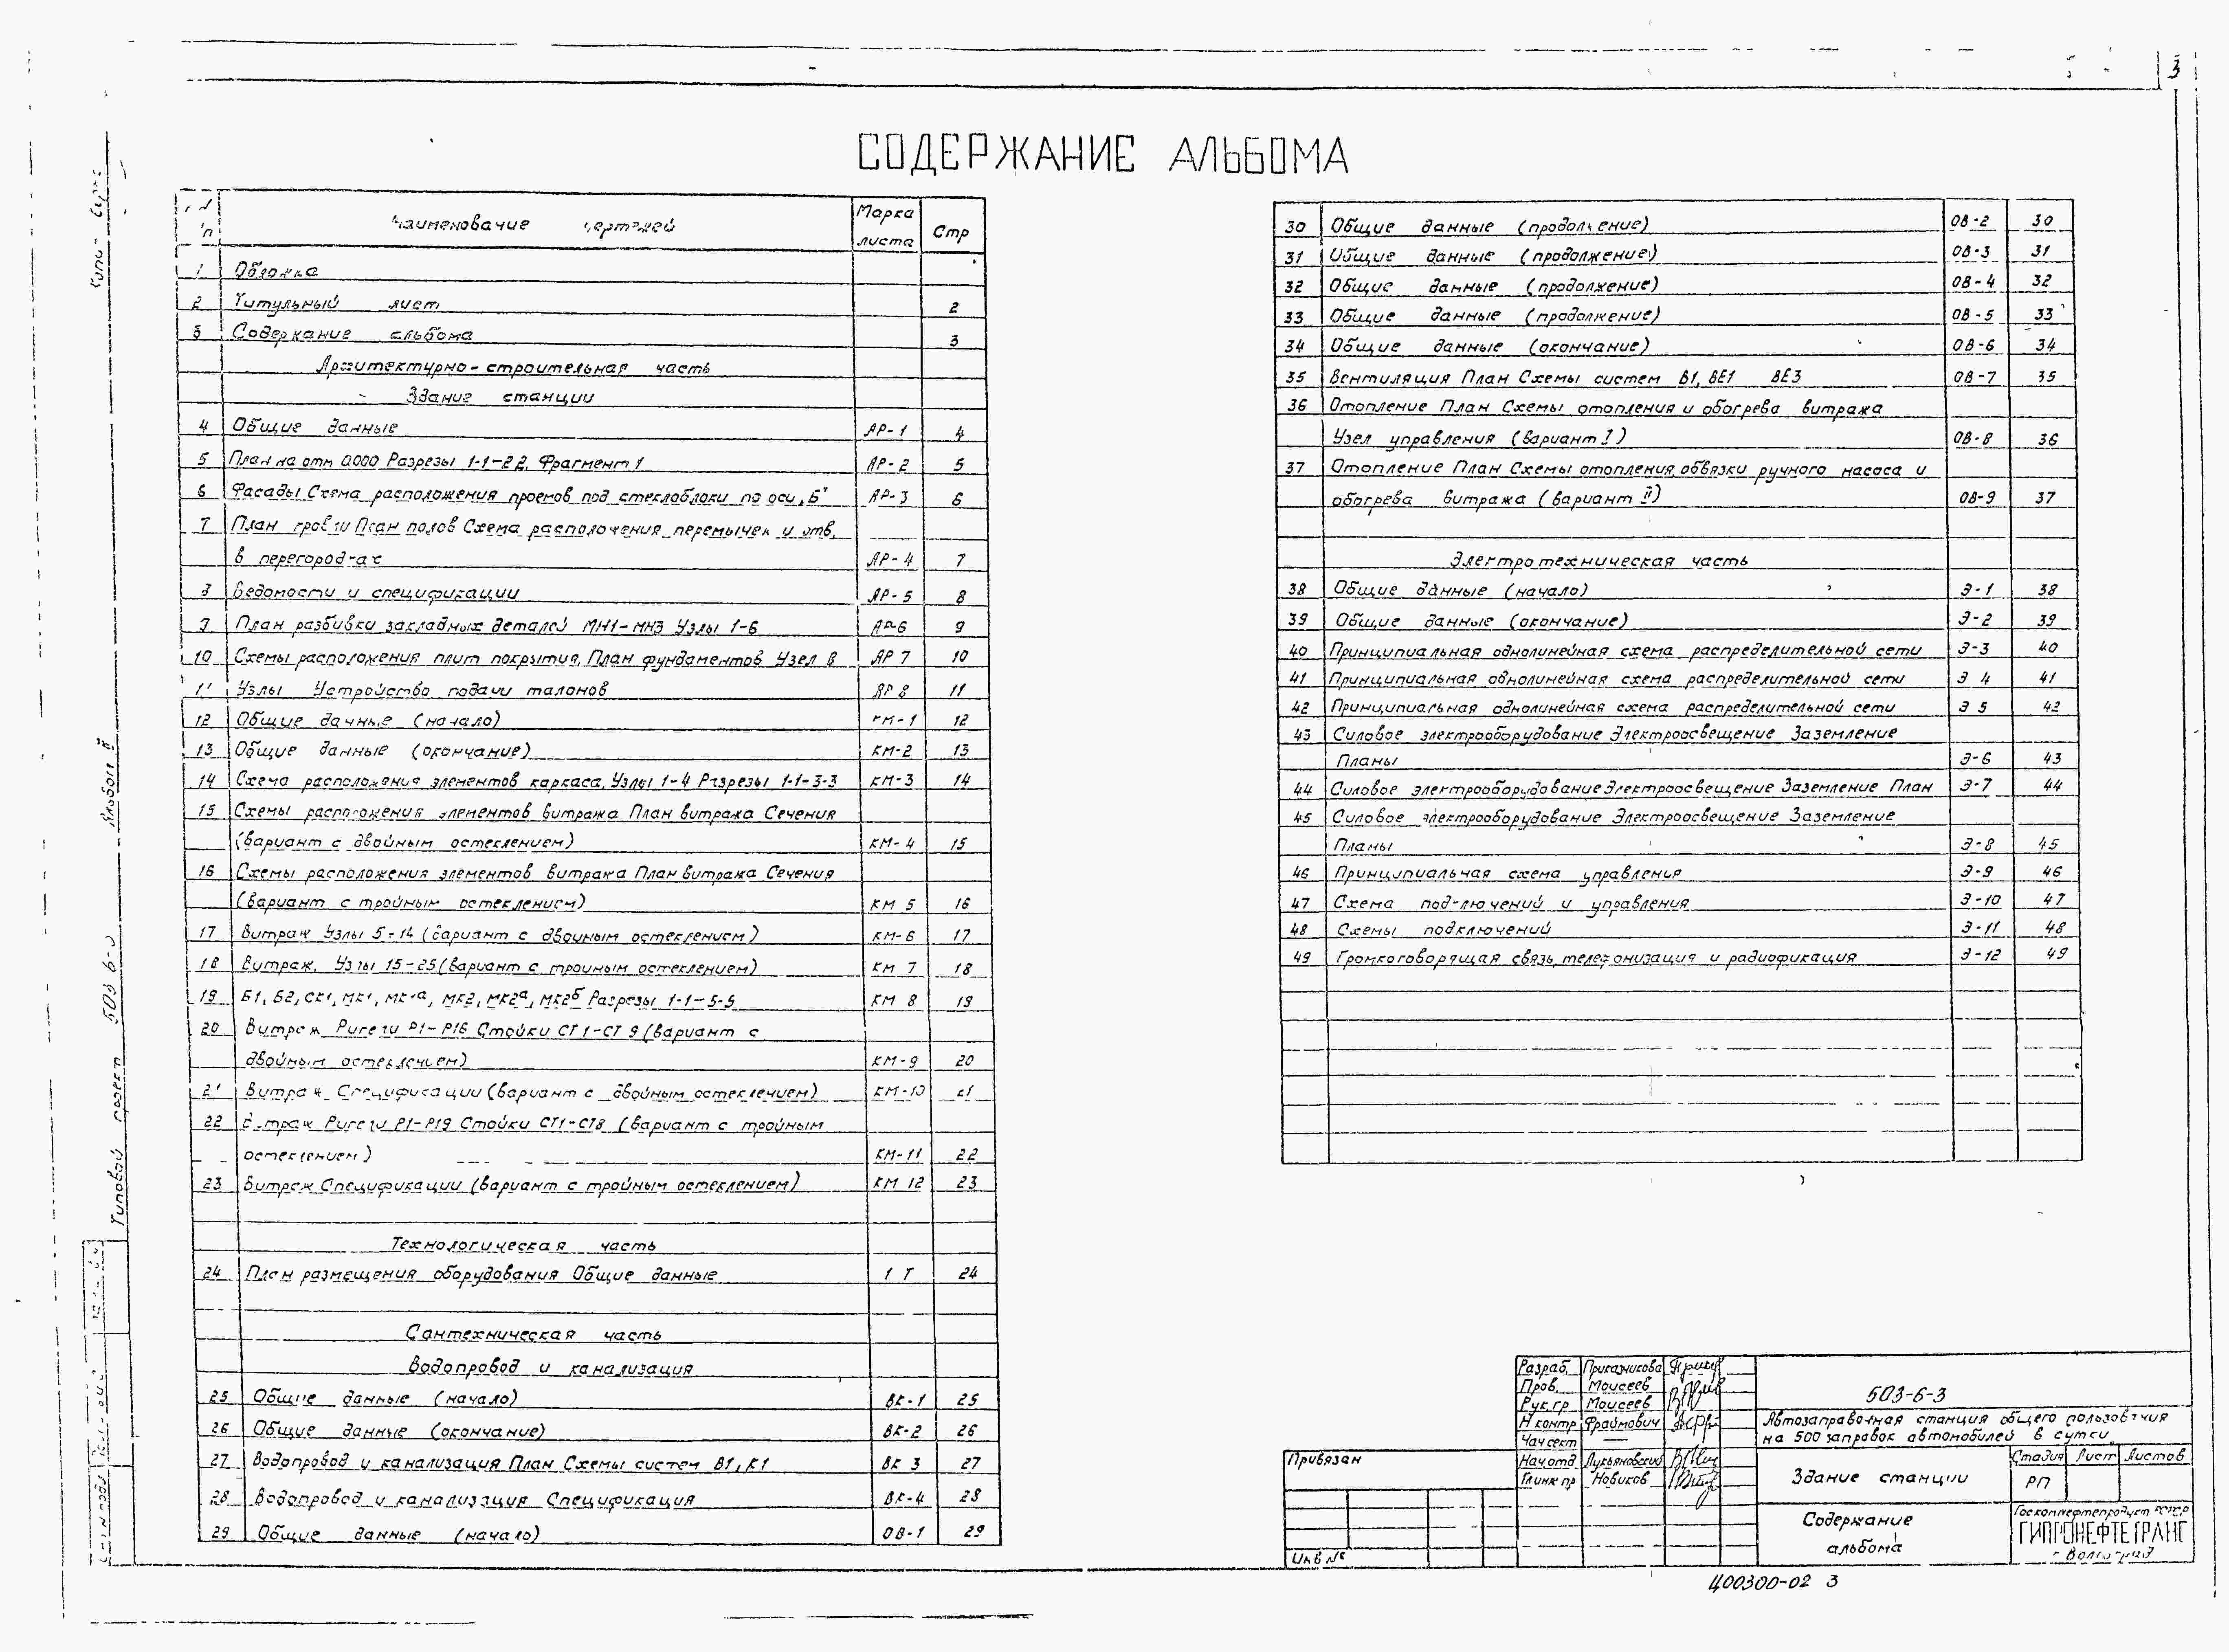 3
СОДЕРЖАНИЕ АЛЬБОМА
Наименование чертежей Марка листа Стр
1 Обложка
2 Титульный лист 2
3 Содержание альбома 3
Архитектурно-строительная часть
Здание станции
4 Общие данные АР-1 4
5 План на отм 0.000 Разрезы 1-1-2 2. Фрагмент 1 АР-2 5
6 Фасады Схема расположения проемов под стеклоблоки по оси „Б" АР-3 6
7 План кровли План полов Схема расположения перемычек и отв.
в перегородках АР-4 7
8 Ведомости и спецификации АР-5 8
9 План разбивки закладных деталей МН1-МН3 Узлы 1-6 АР-6 9
10 Схемы расположения плит покрытия. План фундаментов Узел В АР 7 10
11 Узлы Устройство подачи талонов АР 8 11
12 Общие данные (начало) КМ-1 12
13 Общие данные (окончание) КМ-2 13
14 Схема расположения элементов каркаса. Узлы 1-4 Разрезы 1-1-3-3 КМ-3 14
15 Схемы расположения элементов витража План витража Сечения
(вариант с двойным остеклением) КМ-4 15
16 Схемы расположения элементов витража План витража Сечения
(вариант с тройным остеклением) КМ 5 16
17 Витраж Узлы 5-14 (вариант с двойным остеклением) КМ-6 17
18 Витраж. Узлы 15-25 (вариант с тройным остеклением) КМ 7 18
19 Б1, Б2, СК1, МК1, МК1а, МК2, МК2а, МК2б Разрезы 1-1-5-5 КМ 8 19
20 Витраж Ригели Р1-Р16 Стойки СТ1-СТ 9 (вариант с
двойным остеклением) КМ-9 20
21 Витраж Спецификации (вариант с двойным остеклением) КМ-10 21
22 Витраж Ригели Р1-Р19 Стойки СТ1-СТ8 (вариант с тройным
остеклением) КМ-11 22
23 Витраж Спецификации (вариант с тройным остеклением) КМ 12 23
Технологическая часть
24 План размещения оборудования Общие данные 1 Т 24
Сантехническая часть
Водопровод и канализация
25 Общие данные (начало) ВК-1 25
26 Общие данные (окончание) ВК-2 26
27 Водопровод и канализация План Схемы систем В1, К1 ВК 3 27
28 Водопровод и канализация Спецификация ВК-4 28
29 Общие данные (начало) ОВ-1 29
30 Общие данные (продолжение) ОВ-2 30
31 Общие данные (продолжение) ОВ-3 31
32 Общие данные (продолжение) ОВ-4 32
33 Общие данные (продолжение) ОВ-5 33
34 Общие данные (окончание) ОВ-6 34
35 Вентиляция План Схемы систем В1, ВЕ1 ВЕ3 ОВ-7 35
36 Отопление План Схемы отопления и обогрева витража
Узел управления (вариант I) ОВ-8 36
37 Отопление План Схемы отопления, обвязки ручного насоса и
обогрева витража (вариант II) ОВ-9 37
Электротехническая часть
38 Общие данные (начало) Э-1 38
39 Общие данные (окончание) Э-2 39
40 Принципиальная однолинейная схема распределительной сети Э-3 40
41 Принципиальная однолинейная схема распределительной сети Э 4 41
42 Принципиальная однолинейная схема распределительной сети Э 5 42
43 Силовое электрооборудование Электроосвещение Заземление
Планы Э-6 43
44 Силовое электрооборудование Электроосвещение Заземление План Э-7 44
45 Силовое электрооборудование Электроосвещение Заземление
Планы Э-8 45
46 Принципиальная схема управления Э-9 46
47 Схема подключений и управления Э-10 47
48 Схемы подключений Э-11 48
49 Громкоговорящая связь, телефонизация и радиофикация Э-12 49
Типовой проект 503 6-3 Альбом II
Привязан
Инв №
Разраб. Приказчикова
Пров. Моисеев
Рук. гр Моисеев
Н контр Фраймович
Нач сект —
Нач отд Лукьяновский
Гл инж пр Новиков
503-6-3
Автозаправочная станция общего пользования
на 500 заправок автомобилей в сутки
Здание станции
Стадия Лист Листов
РП
Содержание
альбома
Госкомнефтепродукт РСФСР
ГИПРОНЕФТЕТРАНС
г Волгоград
400300-02 3